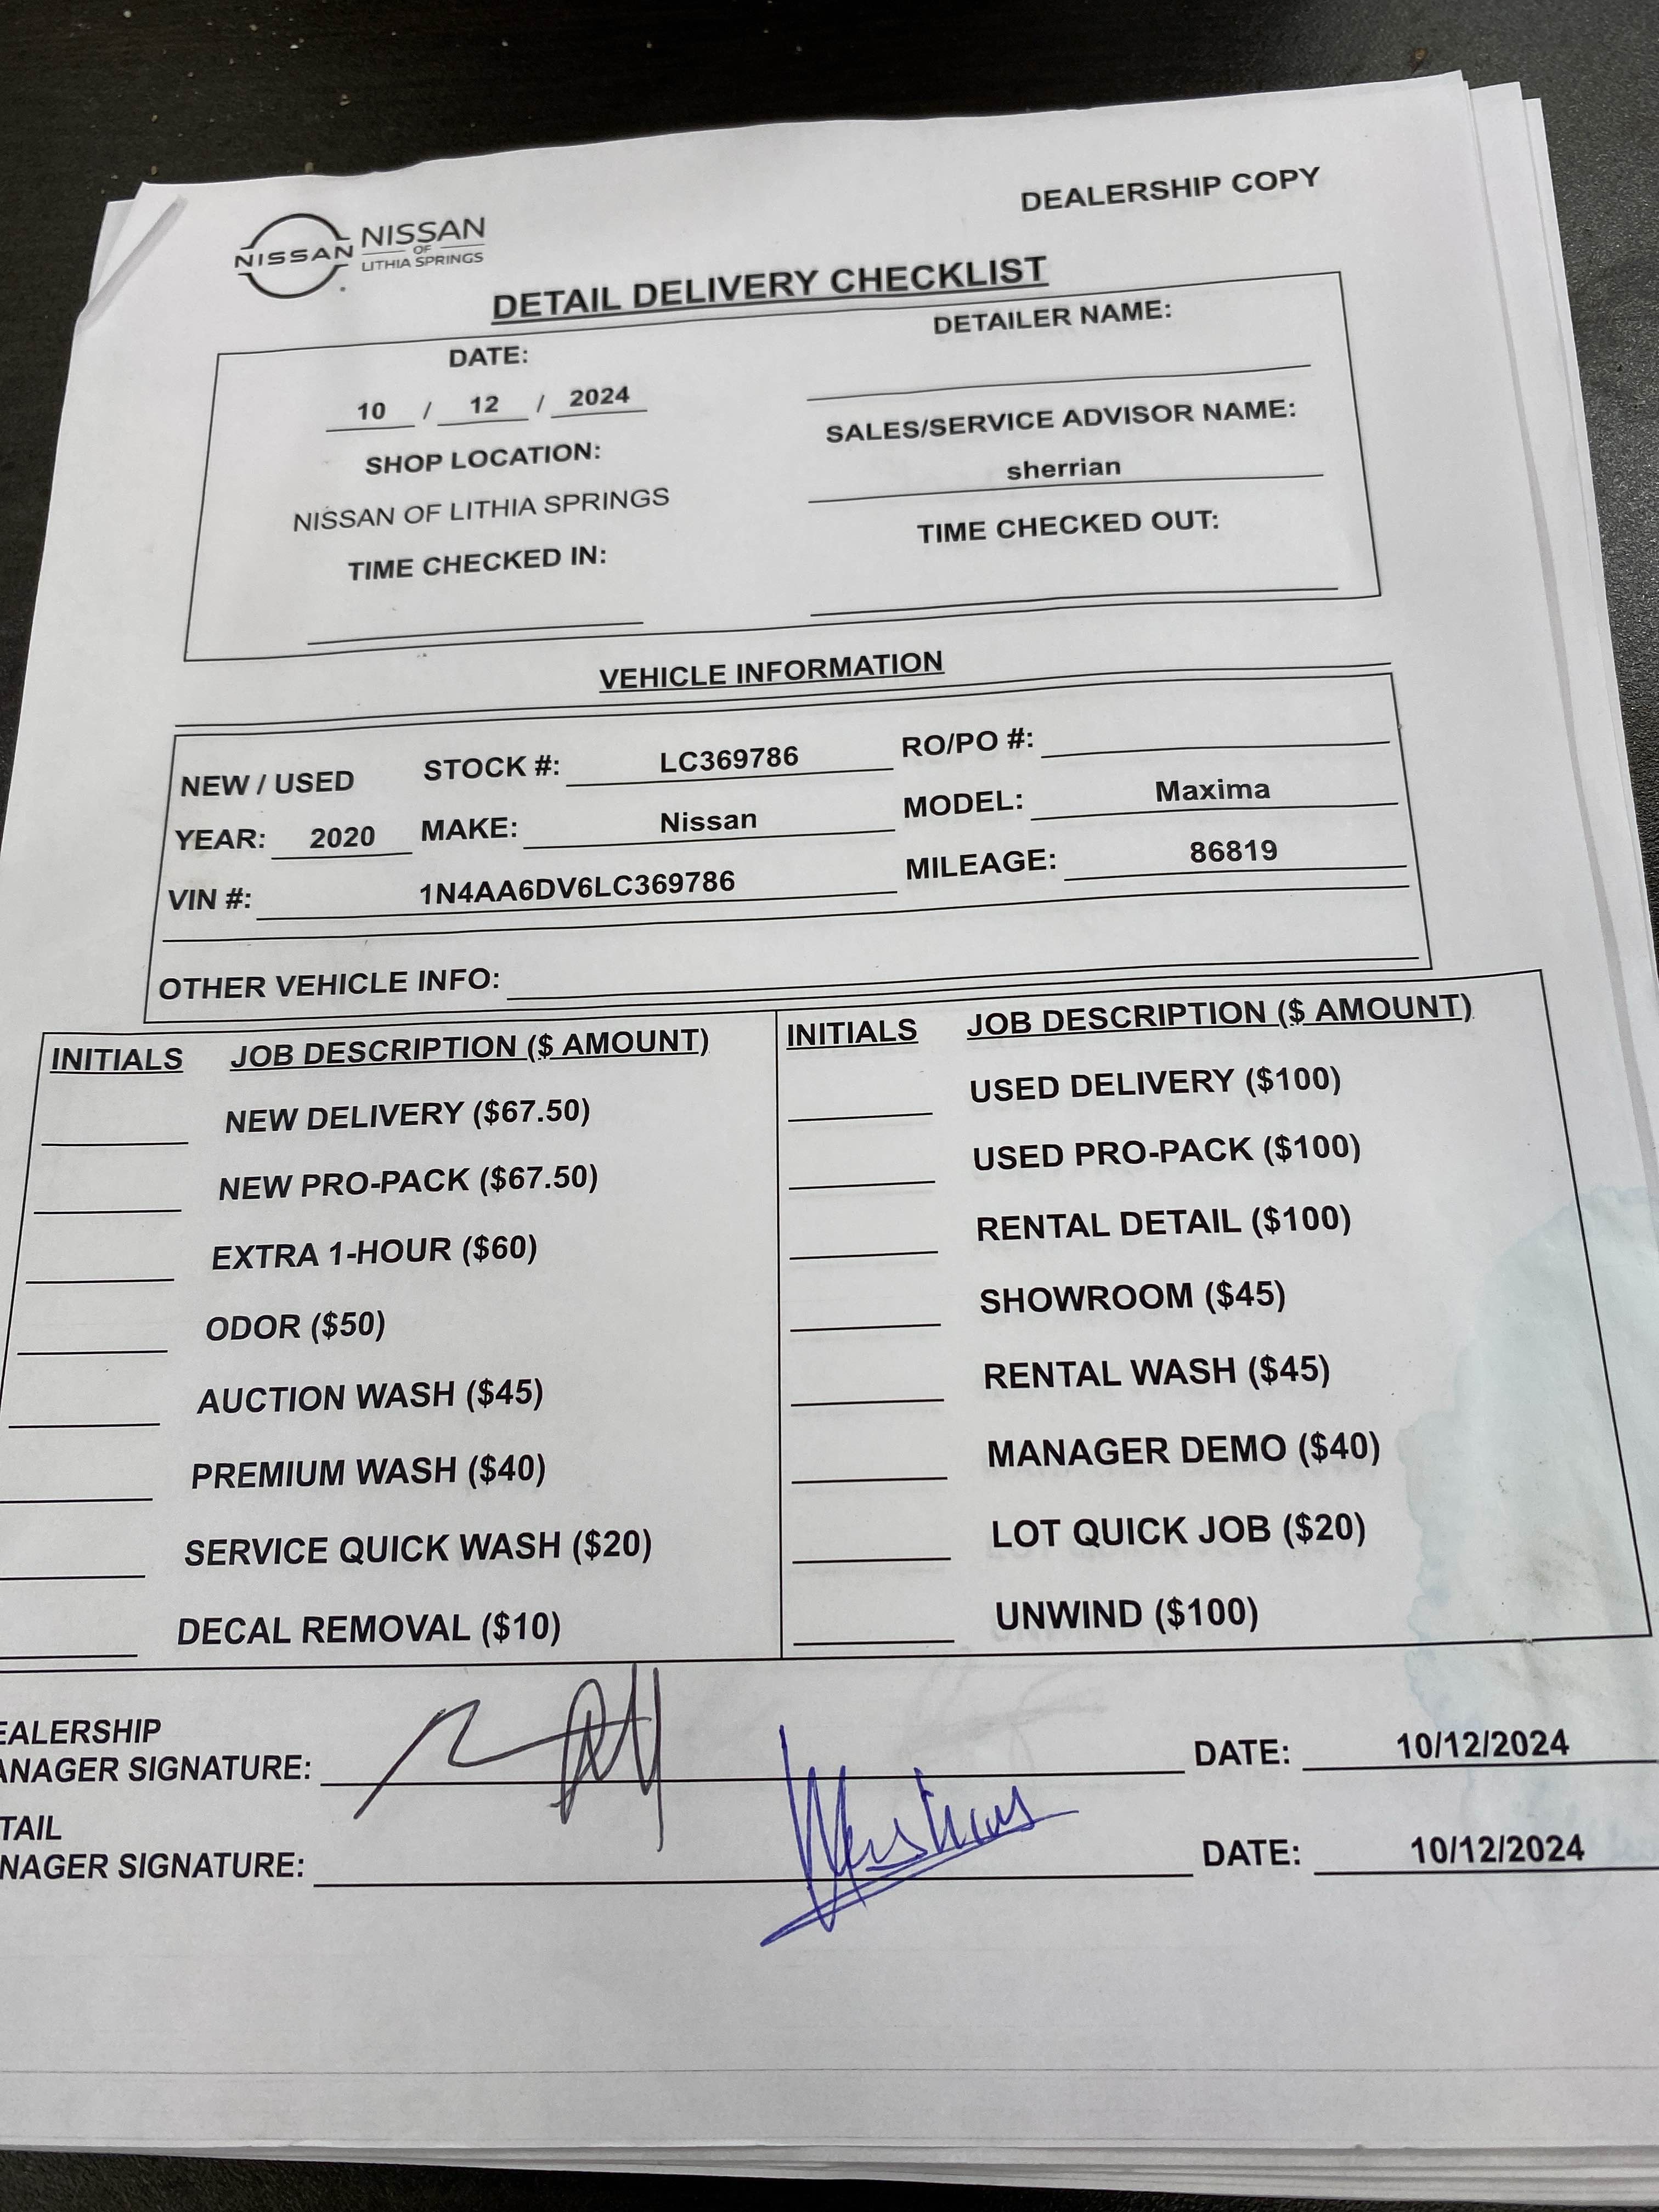 DEALERSHIP COPY
NISSAN
NISSAN
OF
LITHIA SPRINGS
DETAIL DELIVERY CHECKLIST
DATE:
10 / 12 / 2024
SHOP LOCATION:
NISSAN OF LITHIA SPRINGS
TIME CHECKED IN:
DETAILER NAME:
SALES/SERVICE ADVISOR NAME:
sherrian
TIME CHECKED OUT:
VEHICLE INFORMATION
NEW / USED STOCK #: LC369786 RO/PO #:
YEAR: 2020 MAKE: Nissan MODEL: Maxima
VIN #: 1N4AA6DV6LC369786 MILEAGE: 86819
OTHER VEHICLE INFO:
INITIALS JOB DESCRIPTION ($ AMOUNT)
NEW DELIVERY ($67.50)
NEW PRO-PACK ($67.50)
EXTRA 1-HOUR ($60)
ODOR ($50)
AUCTION WASH ($45)
PREMIUM WASH ($40)
SERVICE QUICK WASH ($20)
DECAL REMOVAL ($10)
INITIALS JOB DESCRIPTION ($ AMOUNT)
USED DELIVERY ($100)
USED PRO-PACK ($100)
RENTAL DETAIL ($100)
SHOWROOM ($45)
RENTAL WASH ($45)
MANAGER DEMO ($40)
LOT QUICK JOB ($20)
UNWIND ($100)
EALERSHIP
ANAGER SIGNATURE: DATE: 10/12/2024
TAIL
NAGER SIGNATURE: DATE: 10/12/2024